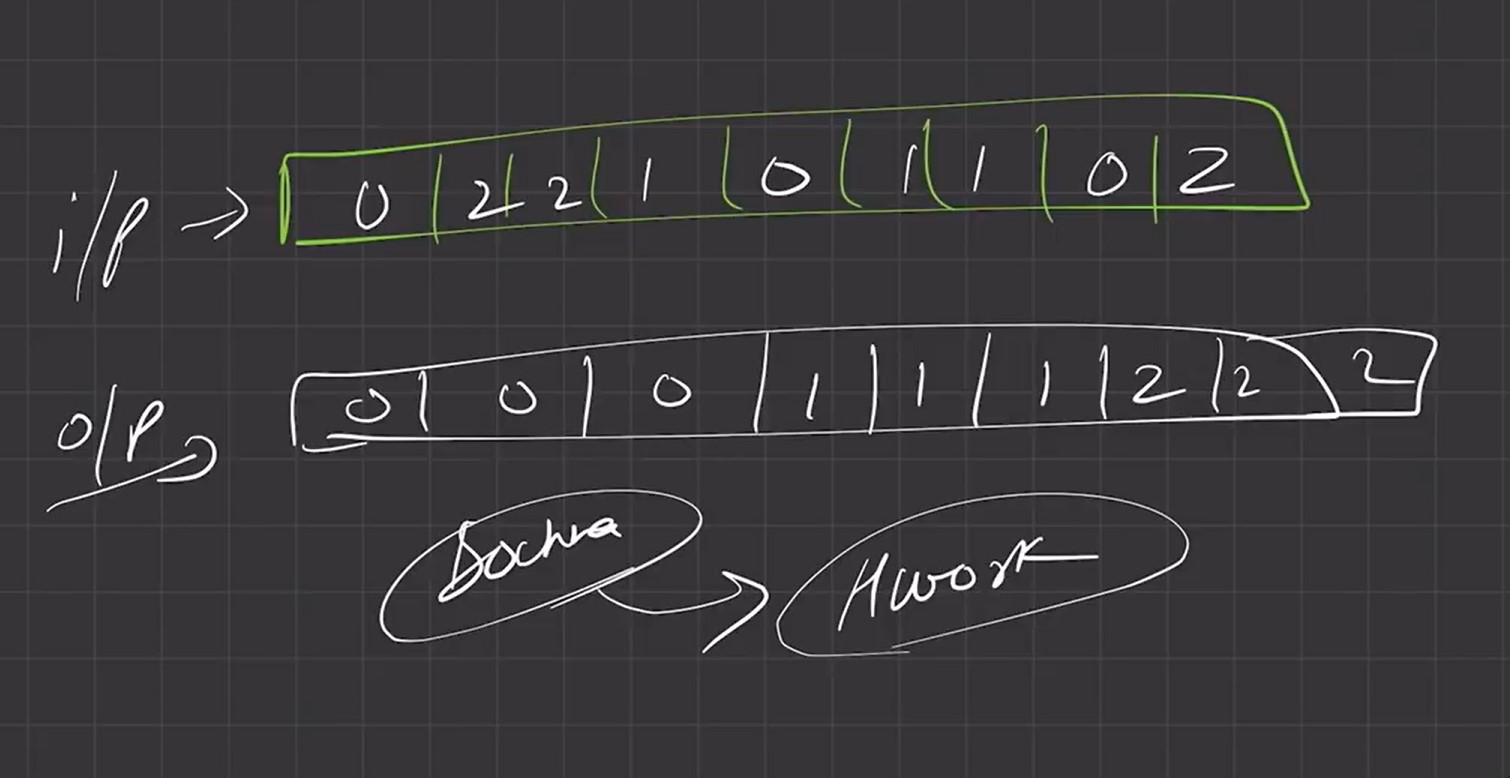 i/p → 0 2 2 1 0 1 1 0 2
o/p → 0 0 0 1 1 1 2 2 2
Hwork